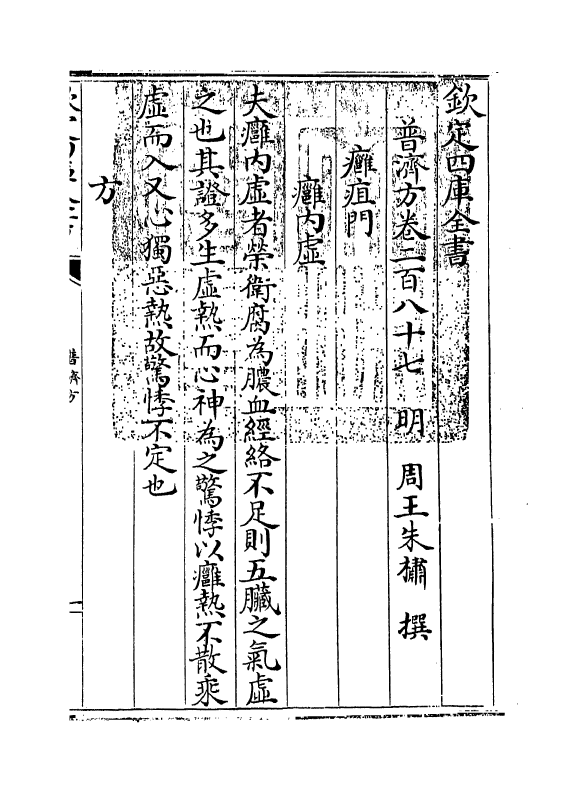 欽定四庫全書
普濟方卷二百八十七 明 周王朱橚 撰
癰疽門
癰内虛
夫癰内虛者榮衛腐為膿血經絡不足則五臟之氣虛
之也其證多生虛熱而心神為之驚悸以癰熱不散乘
虛而入又心獨惡熱故驚悸不定也
方
普濟方